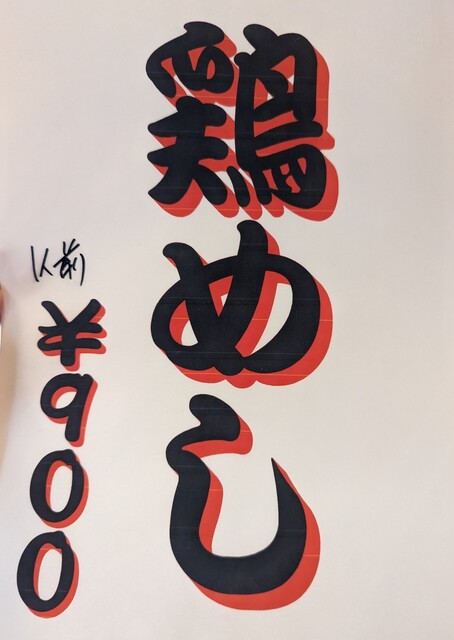 鶏めし
1人前
¥900